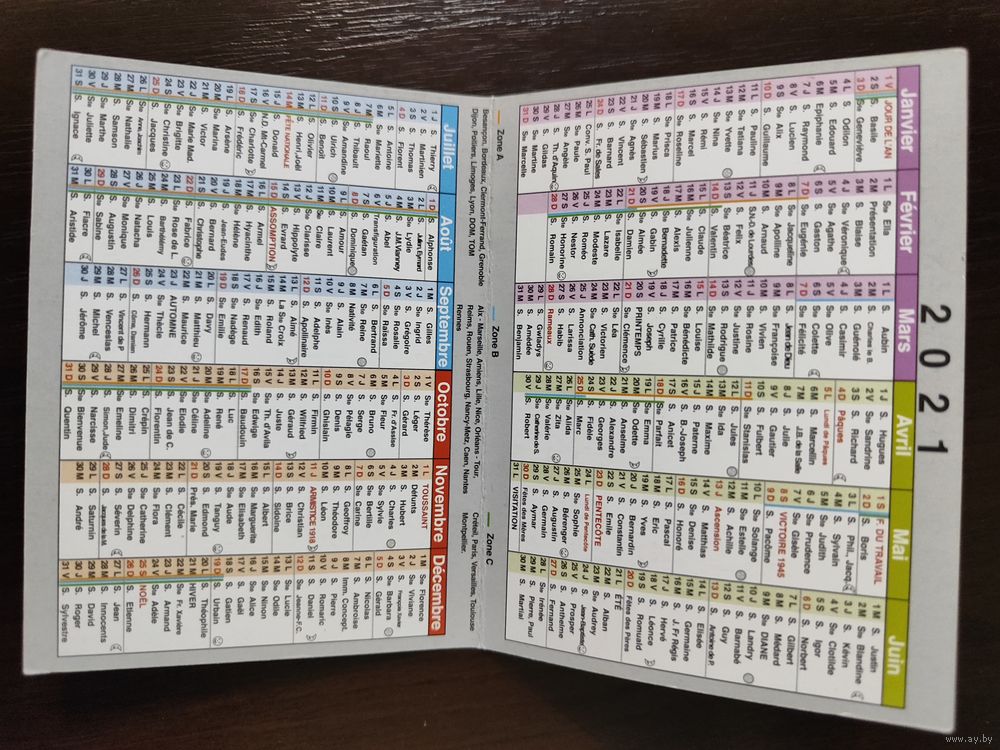 2021
Janvier
1 V JOUR DE L'AN
2 S S. Basile
3 D Ste Geneviève
4 L S. Odilon
5 M S. Edouard
6 M Epiphanie
7 J S. Raymond
8 V S. Lucien
9 S Ste Alix
10 D S. Guillaume
11 L S. Paulin
12 M Ste Tatiana
13 M Ste Yvette
14 J Ste Nina
15 V S. Remi
16 S S. Marcel
17 D Ste Roseline
18 L Ste Prisca
19 M S. Marius
20 M S. Sébastien
21 J Ste Agnès
22 V S. Vincent
23 S S. Barnard
24 D S. Fr. de Sales
25 L Conv. S. Paul
26 M Ste Paule
27 M Ste Angèle
28 J S. Th. d'Aquin
29 V S. Gildas
30 S Ste Martine
31 D Ste Marcelle
Février
1 L Ste Ella
2 M Présentation
3 M S. Blaise
4 J Ste Véronique
5 V Ste Agathe
6 S S. Gaston
7 D Ste Eugénie
8 L Ste Jacqueline
9 M Ste Apolline
10 M S. Arnaud
11 J N.-D. de Lourdes
12 V S. Félix
13 S Ste Béatrice
14 D S. Valentin
15 L S. Claude
16 M Ste Julienne
17 M S. Alexis
18 J Ste Bernadette
19 V S. Gabin
20 S Ste Aimée
21 D S. Damien
22 L Ste Isabelle
23 M S. Lazare
24 M S. Modeste
25 J S. Roméo
26 V S. Nestor
27 S Ste Honorine
28 D S. Romain
Mars
1 L S. Aubin
2 M S. Charles le B.
3 M S. Guénolé
4 J S. Casimir
5 V Ste Olive
6 S Ste Colette
7 D Ste Félicité
8 L S. Jean de Dieu
9 M Ste Françoise
10 M S. Vivien
11 J Ste Rosine
12 V Ste Justine
13 S S. Rodrigue
14 D Ste Mathilde
15 L Ste Louise
16 M Ste Bénédicte
17 M S. Patrice
18 J S. Cyrille
19 V S. Joseph
20 S PRINTEMPS
21 D Ste Clémence
22 L Ste Léa
23 M S. Victorien
24 M Cath. Suède
25 J Annonciation
26 V Ste Larissa
27 S S. Habib
28 D Rameaux
29 L Ste Gwladys
30 M S. Amédée
31 M S. Benjamin
Avril
1 J S. Hugues
2 V Ste Sandrine
3 S S. Richard
4 D Pâques
5 L Lundi de Pâques
6 M S. Marcellin
7 M J.B. de la Salle
8 J Ste Julie
9 V S. Gautier
10 S S. Fulbert
11 D S. Stanislas
12 L S. Jules
13 M Ste Ida
14 M S. Maxime
15 J S. Paterne
16 V S. B.-Joseph
17 S S. Anicet
18 D S. Parfait
19 L Ste Emma
20 M Ste Odette
21 M S. Anselme
22 J S. Alexandre
23 V S. Georges
24 S S. Fidèle
25 D S. Marc
26 L Ste Alida
27 M Ste Zita
28 M Ste Valérie
29 J Catherine de S.
30 V S. Robert
Mai
1 S F. DU TRAVAIL
2 D S. Boris
3 L S. Phil., Jacq.
4 M S. Sylvain
5 M Ste Judith
6 J Ste Prudence
7 V Ste Gisèle
8 S VICTOIRE 1945
9 D S. Pacôme
10 L Ste Solange
11 M Ste Estelle
12 M S. Achille
13 J Ascension
14 V S. Matthias
15 S Ste Denise
16 D S. Honoré
17 L S. Pascal
18 M S. Eric
19 M S. Yves
20 J S. Bernardin
21 V S. Constantin
22 S S. Emile
23 D PENTECÔTE
24 L Lundi de Pentecôte
25 M Ste Sophie
26 M S. Bérenger
27 J S. Augustin
28 V S. Germain
29 S S. Aymar
30 D Fêtes des Mères
31 L VISITATION
Juin
1 M S. Justin
2 M Ste Blandine
3 J S. Kévin
4 V Ste Clotilde
5 S S. Igor
6 D S. Norbert
7 L S. Gilbert
8 M S. Médard
9 M Ste DIANE
10 J S. Landry
11 V S. Barnabé
12 S S. Guy
13 D Antoine de P.
14 L S. Elisée
15 M Ste Germaine
16 M S. J. Fr Régis
17 J S. Hervé
18 V S. Léonce
19 S S. Romuald
20 D Fêtes des Pères
21 L ÉTÉ
22 M S. Alban
23 M Ste Audrey
24 J S. Jean-Baptiste
25 V S. Prosper
26 S S. Anthelme
27 D S. Fernand
28 L S. Irénée
29 M S. Pierre, Paul
30 M S. Martial
Zone A
Besançon, Bordeaux, Clermont-Ferrand, Grenoble
Dijon, Poitiers, Limoges, Lyon, DOM, TOM
Zone B
Aix - Marseille, Amiens, Lille, Nice, Orléans - Tour,
Reims, Rouen, Strasbourg, Nancy-Metz, Caen, Nantes
Rennes
Zone C
Créteil, Paris, Versailles, Toulouse
Montpellier.
Juillet
1 J S. Thierry
2 V S. Martinien
3 S S. Thomas
4 D S. Florent
5 L S. Antoine
6 M Ste Mariette
7 M S. Raoul
8 J S. Thibaut
9 V Ste Amandine
10 S S. Ulrich
11 D S. Benoît
12 L S. Olivier
13 M S. Henri, Joël
14 M FÊTE NATIONALE
15 J S. Donald
16 V N.D Mt-Carmel
17 S Ste Charlotte
18 D S. Frédéric
19 L S. Arsène
20 M Ste Marina
21 M S. Victor
22 J Ste Marie Mad.
23 V Ste Brigitte
24 S Ste Christine
25 D S. Jacques
26 L S. Anne, Joachim
27 M Ste Nathalie
28 M S. Samson
29 J Ste Marthe
30 V Ste Juliette
31 S S. Ignace
Août
1 D S. Alphonse
2 L S. Julien, Eymard
3 M Ste Lydie
4 M S. J.M. Vianney
5 J S. Abel
6 V Transfiguration
7 S S. Gaétan
8 D S. Dominique
9 L S. Amour
10 M S. Laurent
11 M Ste Claire
12 J Ste Clarisse
13 V S. Hippolyte
14 S S. Evrard
15 D ASSOMPTION
16 L S. Armel
17 M S. Hyacinthe
18 M Ste Hélène
19 J S. Jean-Eudes
20 V S. Bernard
21 S S. Christophe
22 D S. Fabrice
23 L Ste Rose de L.
24 M S. Barthélémy
25 M S. Louis
26 J Ste Natacha
27 V Ste Monique
28 S S. Augustin
29 D Ste Sabine
30 L S. Fiacre
31 M S. Aristide
Septembre
1 M S. Gilles
2 J Ste Ingrid
3 V S. Grégoire
4 S Ste Rosalie
5 D Ste Raïssa
6 L S. Bertrand
7 M Ste Reine
8 M Nativité
9 J S. Alain
10 V Ste Inès
11 S S. Adelphe
12 D S. Apollinaire
13 L S. Aimé
14 M La Ste Croix
15 M S. Roland
16 J Ste Edith
17 V S. Renaud
18 S Ste Nadège
19 D Ste Emilie
20 L S. Davy
21 M S. Matthieu
22 M S. Maurice
23 J AUTOMNE
24 V Ste Thècle
25 S S. Hermann
26 D S. Côme, Damien
27 L S. Vincent de P.
28 M S. Venceslas
29 M S. Michel
30 J S. Jérôme
Octobre
1 V Ste Thérèse
2 S S. Léger
3 D S. Gérard
4 L S. Fr. d'Assise
5 M Ste Fleur
6 M S. Bruno
7 J S. Serge
8 V Ste Pélagie
9 S S. Denis
10 D S. Ghislain
11 L S. Firmin
12 M S. Wilfried
13 M S. Géraud
14 J S. Juste
15 V Ste Th. d'Avila
16 S Ste Edwige
17 D S. Baudouin
18 L S. Luc
19 M S. René
20 M Ste Adeline
21 J Ste Céline
22 V Ste Elodie
23 S S. Jean de C.
24 D S. Florentin
25 L S. Crépin
26 M S. Dimitri
27 M Ste Emeline
28 J S. Simon, Jude
29 V S. Narcisse
30 S Ste Bienvenue
31 D S. Quentin
Novembre
1 L TOUSSAINT
2 M Défunts
3 M S. Hubert
4 J S. Charles
5 V Ste Sylvie
6 S Ste Bertille
7 D Ste Carine
8 L S. Geoffroy
9 M S. Théodore
10 M S. Léon
11 J ARMISTICE 1918
12 V S. Christian
13 S S. Brice
14 D S. Sidoine
15 L S. Albert
16 M Ste Marguerite
17 M Ste Elisabeth
18 J Ste Aude
19 V S. Tanguy
20 S S. Edmond
21 D Prés. Marie
22 L Ste Cécile
23 M S. Clément
24 M Ste Flora
25 J Ste Catherine
26 V Ste Delphine
27 S S. Séverin
28 D S. Jacques de la M.
29 L S. Saturnin
30 M S. André
Décembre
1 M Ste Florence
2 J Ste Viviane
3 V S. François Xavier
4 S Ste Barbara
5 D S. Gérald
6 L S. Nicolas
7 M S. Ambroise
8 M Imm. Concept.
9 J S. P. Fourier
10 V S. Romaric
11 S S. Daniel
12 D Jeanne-F.C.
13 L Ste Lucie
14 M Ste Odile
15 M Ste Ninon
16 J Ste Alice
17 V S. Gaël
18 S S. Gatien
19 D S. Urbain
20 L S. Théophile
21 M HIVER
22 M S. Fr. Xavière
23 J S. Armand
24 V Ste Adèle
25 S NOËL
26 D S. Etienne
27 L S. Jean
28 M S. Innocents
29 M S. David
30 J S. Roger
31 V S. Sylvestre
www.ay.by